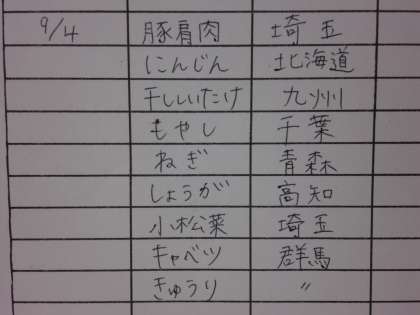 9/4 豚肩肉 埼玉
にんじん 北海道
干ししいたけ 九州
もやし 千葉
ねぎ 青森
しょうが 高知
小松菜 埼玉
キャベツ 群馬
きゅうり 〃